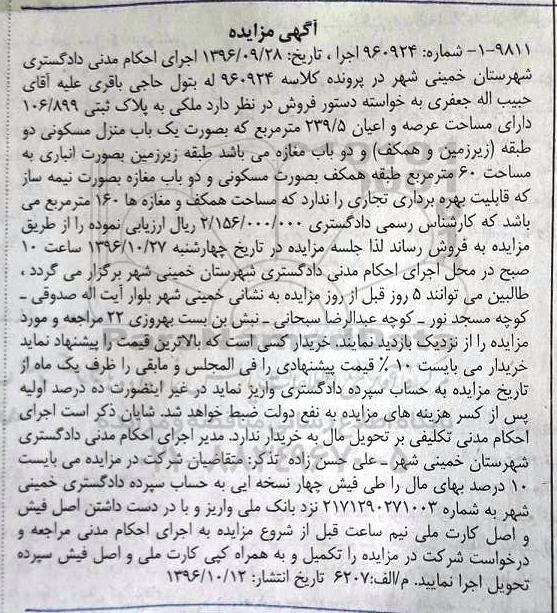 آگهی مزایده
۱-۹۸۱۱- شماره: ۹۶۰۹۲۴ اجرا ، تاریخ: ۱۳۹۶/۰۹/۲۸ اجرای احکام مدنی دادگستری
شهرستان خمینی شهر در پرونده کلاسه ۹۶۰۹۲۴ له بتول حاجی باقری علیه آقای
حبیب اله جعفری به خواسته دستور فروش در نظر دارد ملکی به پلاک ثبتی ۱۰۶/۸۹۹
دارای مساحت عرصه و اعیان ۲۳۹/۵ مترمربع که بصورت یک باب منزل مسکونی دو
طبقه (زیرزمین و همکف) و دو باب مغازه می باشد طبقه زیرزمین بصورت انباری به
مساحت ۶۰ مترمربع طبقه همکف بصورت مسکونی و دو باب مغازه بصورت نیمه ساز
که قابلیت بهره برداری تجاری را ندارد که مساحت همکف و مغازه ها ۱۶۰ مترمربع می
باشد که کارشناس رسمی دادگستری ۲/۱۵۶/۰۰۰/۰۰۰ ریال ارزیابی نموده را از طریق
مزایده به فروش رساند لذا جلسه مزایده در تاریخ چهارشنبه ۱۳۹۶/۱۰/۲۷ ساعت ۱۰
صبح در محل اجرای احکام مدنی دادگستری شهرستان خمینی شهر برگزار می گردد ،
طالبین می توانند ۵ روز قبل از روز مزایده به نشانی خمینی شهر بلوار آیت اله صدوقی ـ
کوچه مسجد نور ـ کوچه عبدالرضا سبحانی ـ نبش بن بست بهروزی ۲۲ مراجعه و مورد
مزایده را از نزدیک بازدید نمایند. خریدار کسی است که بالاترین قیمت را پیشنهاد نماید
خریدار می بایست ۱۰ ٪ قیمت پیشنهادی را فی المجلس و مابقی را ظرف یک ماه از
تاریخ مزایده به حساب سپرده دادگستری واریز نماید در غیر اینصورت ده درصد اولیه
پس از کسر هزینه های مزایده به نفع دولت ضبط خواهد شد. شایان ذکر است اجرای
احکام مدنی تکلیفی بر تحویل مال به خریدار ندارد. مدیر اجرای احکام مدنی دادگستری
شهرستان خمینی شهر ـ علی حسن زاده تذکر: متقاضیان شرکت در مزایده می بایست
۱۰ درصد بهای مال را طی فیش چهار نسخه ایی به حساب سپرده دادگستری خمینی
شهر به شماره ۲۱۷۱۲۹۰۲۷۱۰۰۳ نزد بانک ملی واریز و با در دست داشتن اصل فیش
و اصل کارت ملی نیم ساعت قبل از شروع مزایده به اجرای احکام مدنی مراجعه و
درخواست شرکت در مزایده را تکمیل و به همراه کپی کارت ملی و اصل فیش سپرده
تحویل اجرا نمایید. م/الف:۶۲۰۷ تاریخ انتشار: ۱۳۹۶/۱۰/۱۲